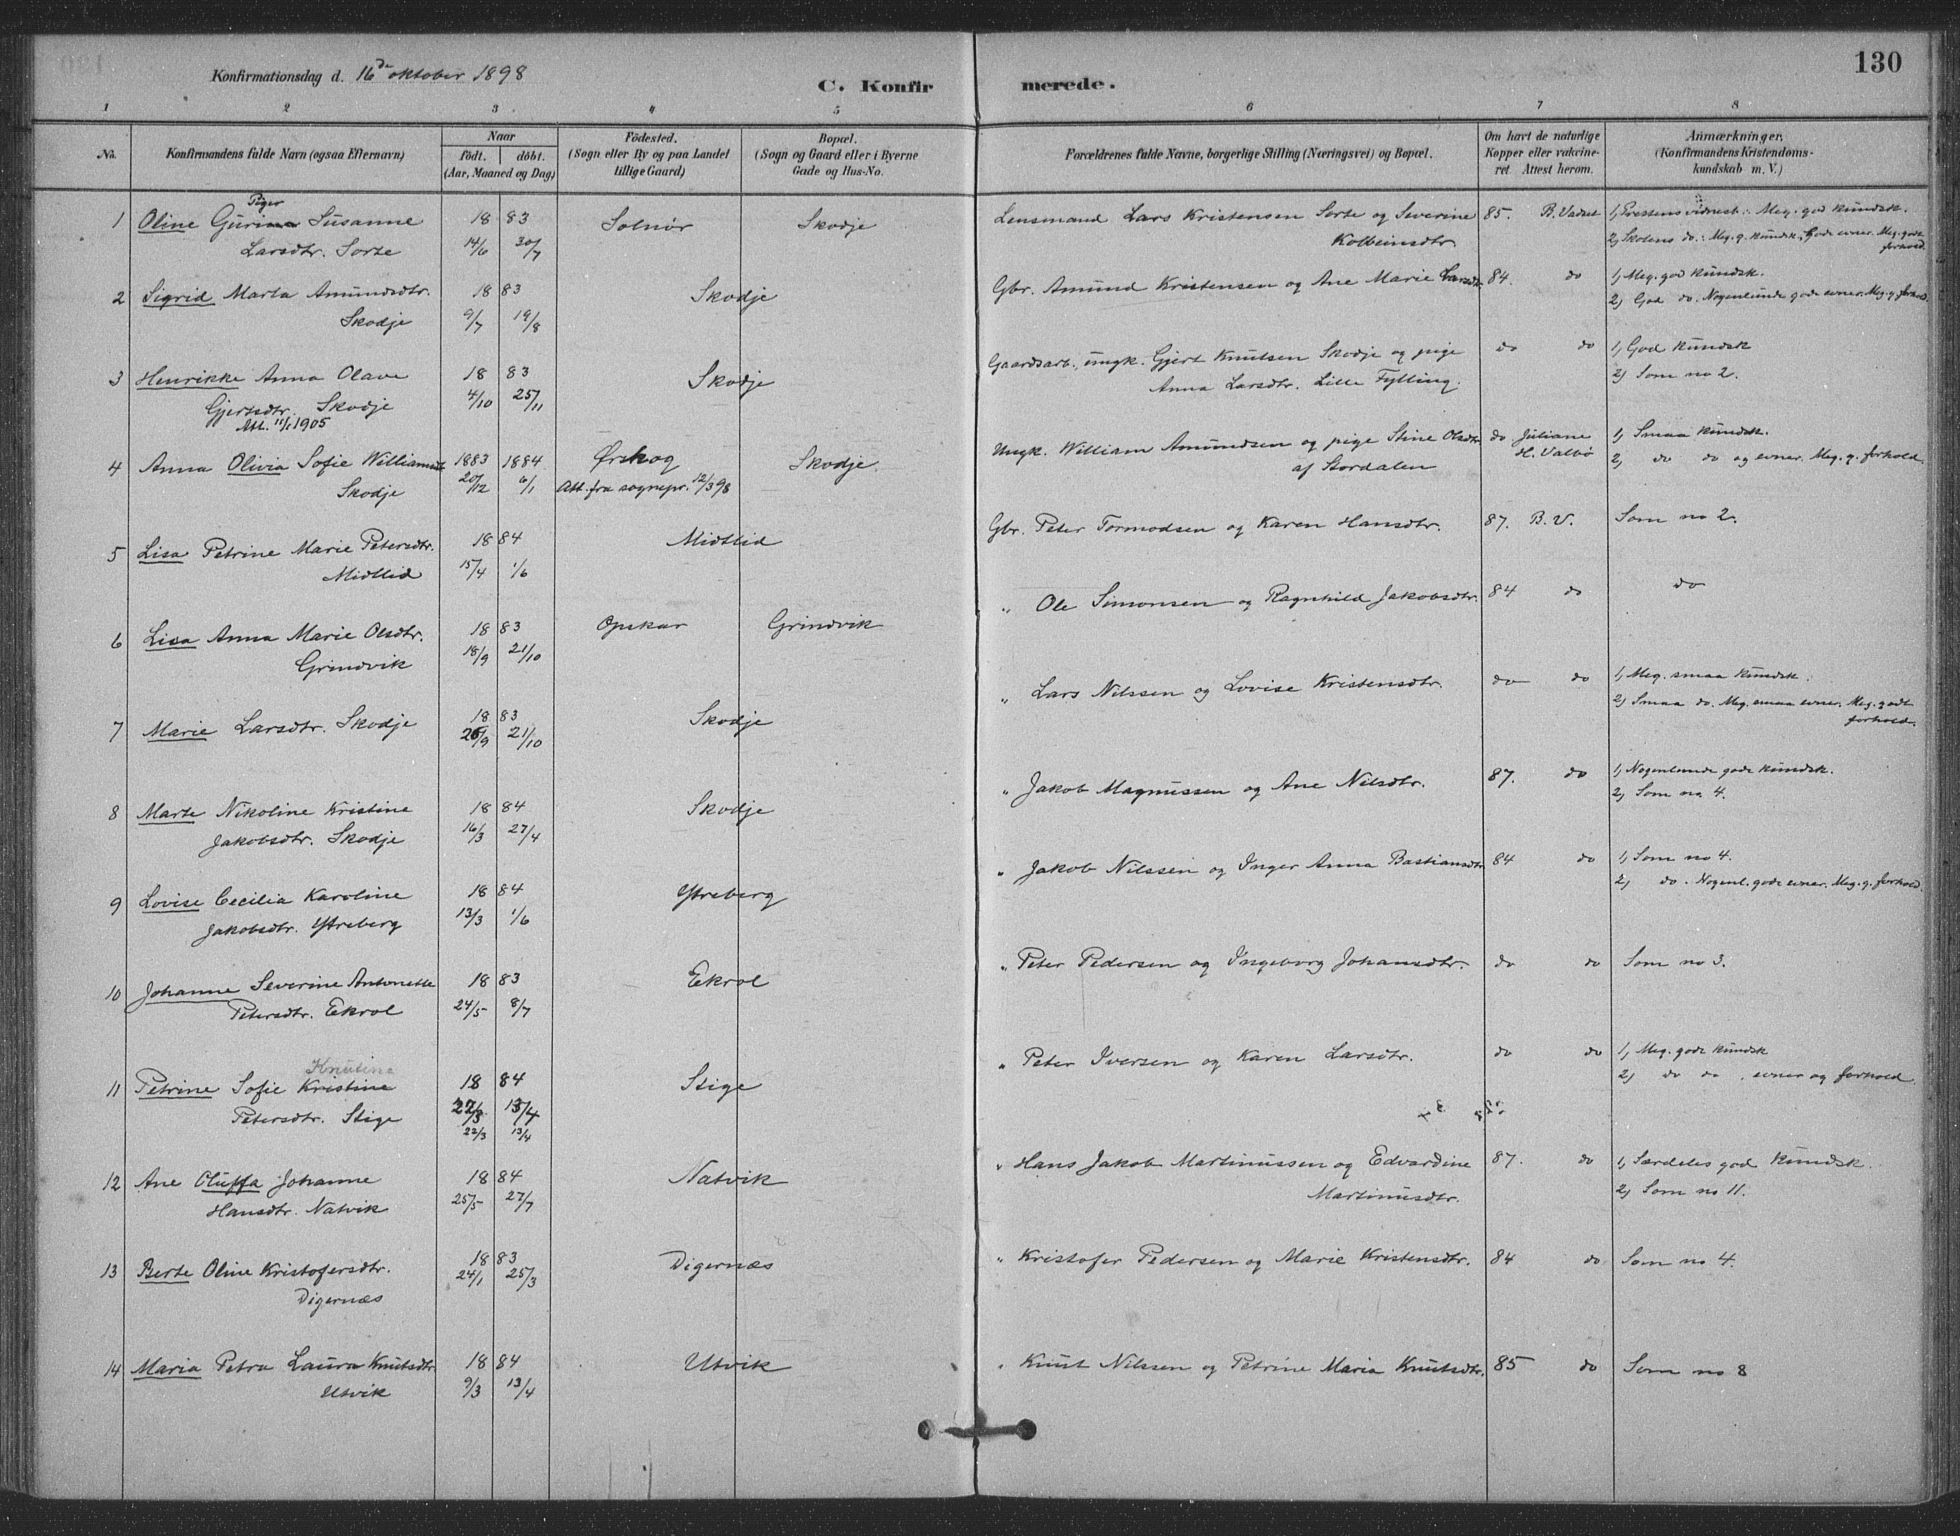 130
Konfirmationsdag d. 16de oktober 1898
C. Konfirmerede.
1 2 3 4 5 6 7 8
No.
Konfirmandens fulde Navn (ogsaa Efternavn)
Naar
födt. döbt.
(Aar, Maaned og Dag)
Födested.
(Sogn eller By og paa Landet
tillige Gaard)
Bopæl.
(Sogn og Gaard eller i Byerne
Gade og Hus-No.
Forældrenes fulde Navne, borgerlige Stilling (Næringsvei) og Bopæl.
Om havt de naturlige
Kopper eller vakvine-
ret. Attest herom.
Anmærkninger.
(Konfirmandens Kristendoms-
kundskab m. V.)
Piger
1 Oline Gurina Susanne 18 83 Solnör Skodje Lensmand Lars Kristensen Sorte og Severine 85. B. Vadset 1) Prestens vidnesb.: Meg. god kundsk.
Larsdtr. Sorte 14/6 30/7 Kolbeinsdtr. 2) Skolens do.: Meg. g. kundsk., gode evner. Meg. godt
forhold.
2 Sigrid Marta Amundsdtr. 18 83 Skodje Gbr. Amund Kristensen og Ane Marie Larsdtr. 84. do 1) Meg. god kundsk.
Skodje 9/7 19/8 2) God do. Nogenlunde gode evner. Meg. g. forhold.
3 Henrikke Anna Olave 18 83 Skodje Gaardsarb. ungk. Gjert Knutsen Skodje og pige do do 1) God kundsk
Gjertsdtr. Skodje 4/10 25/11 Anna Larsdtr. Lille Fylling. 2) Som no 2.
Att. 11/1 1905
4 Anna Olivia Sofie Williamsdtr 1883 1884 Ørskog Skodje Ungk. William Amundsen og pige Stine Olsdtr do Juliane 1) Smaa kundsk.
Skodje 20/12 6/1 Att. fra sognepr. 12/3 98 af Stordalen H. Valbö 2) do do og evner. Meg. g. forhold.
5 Lisa Petrine Marie Petersdtr. 18 84 Midtlid Gbr. Peter Tormodsen og Karen Hansdtr. 87. B. V. Som no 2.
Midtlid 15/4 1/6
6 Lisa Anna Marie Olsdtr. 18 83 Opskar Grindvik " Ole Simonsen og Ragnhild Jakobsdtr. 84 do do
Grindvik 18/9 21/10
7 Marie Larsdtr. Skodje 18 83 Skodje " Lars Nilssen og Lovise Kristensdtr. do do 1) Meg. smaa kundsk.
26/9 21/10 2) Smaa do. Meg. smaa evner. Meg. godt
forhold.
8 Marte Nikoline Kristine 18 84 Skodje " Jakob Magnussen og Ane Nilsdtr. 87. do 1) Nogenlunde gode kundsk.
Jakobsdtr. Skodje 16/3 27/4 2) Som no 4.
9 Lovise Cecilia Karoline 18 84 Ytreberg " Jakob Nilssen og Inger Anna Bastiansdtr 84 do 1) Som no 4.
Jakobsdtr. Ytreberg 13/3 1/6 2) do. Nogenl. gode evner. Meg. g. forhold.
10 Johanne Severine Antonette 18 83 Ekrol " Peter Pedersen og Ingeborg Johansdtr. do do Som no 3.
Petersdtr. Ekrol 24/5 8/7
Knutina
11 Petrine Sofie Kristine 18 84 Stige " Peter Iversen og Karen Larsdtr. do do 1) Meg. gode kundsk
Petersdtr. Stige 22/3 13/4 2) do do. evner og forhold.
22/3 13/4
12 Ane Oluffa Johanne 18 84 Natvik " Hans Jakob Martinussen og Edvardine 87. do 1) Særdeles god kundsk.
Hansdtr. Natvik 25/5 27/7 Martinusdtr. 2) Som no 11.
13 Berte Oline Kristofersdtr. 18 83 Digernæs " Kristofer Pedersen og Marie Kristensdtr. 84 do Som no 4.
Digernæs 24/1 25/3
14 Maria Petra Laura Knutsdtr 18 84 Utvik " Knut Nilssen og Petrine Maria Knutsdtr. 85 do Som no 8
Utvik 9/3 13/4